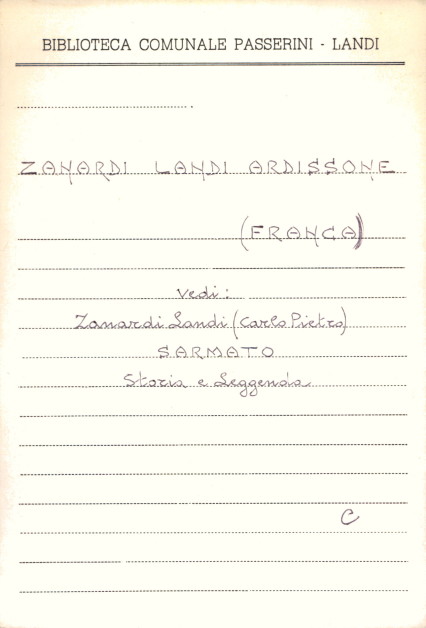 BIBLIOTECA COMUNALE PASSERINI - LANDI
ZANARDI LANDI ARDISSONE
(FRANCA)
Vedi:
Zanardi Landi (Carlo Pietro)
SARMATO
Storia e Leggenda
C